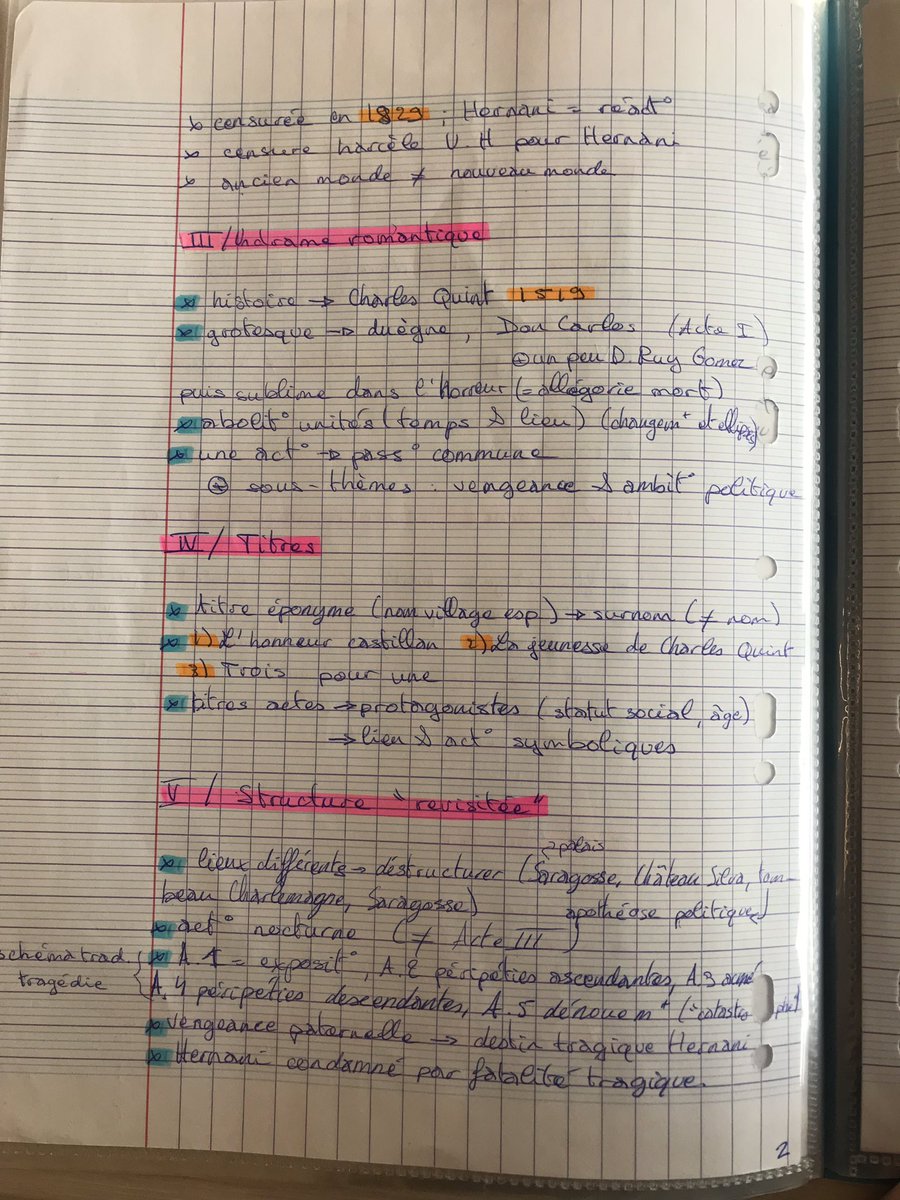 × censurée en 1829 ; Hernani = réact°
× censure harcèle V.H pour Hernani
× ancien monde ≠ nouveau monde
III / Un drame romantique
× histoire → Charles Quint 1519
× grotesque → duègne, Don Carlos (Acte I)
⊕ un peu D. Ruy Gomez
puis sublime dans l'horreur (= allégorie mort)
× abolit° unités (temps & lieu) (changemt et ellipses)
× une act° → pass° commune
⊕ sous-thèmes : vengeance & ambit° politique
IV / Titres
× titre éponyme (nom village esp.) → surnom (≠ nom)
× 1) L'honneur castillan 2) La jeunesse de Charles Quint
3) Trois pour une
× titres actes → protagonistes (statut social, âge)
→ lieu & act° symboliques
V / Structure "revisitée"
palais
× lieux différents → déstructurer (Saragosse, Château Silva, tom-
beau Charlemagne, Saragosse)
apothéose politique
× act° nocturne (≠ Acte III)
schéma trad. tragédie
× A.1 = exposit°, A.2 péripéties ascendantes, A.3 acmé
A.4 péripéties descendantes, A.5 dénouemt (catastrophe)
× vengeance paternelle → destin tragique Hernani
× Hernani condamné par fatalité tragique.
2